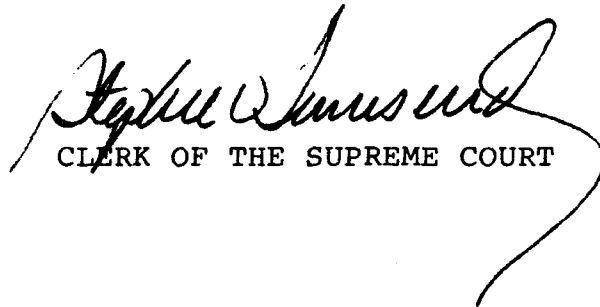 Stephen W. Townsend
CLERK OF THE SUPREME COURT